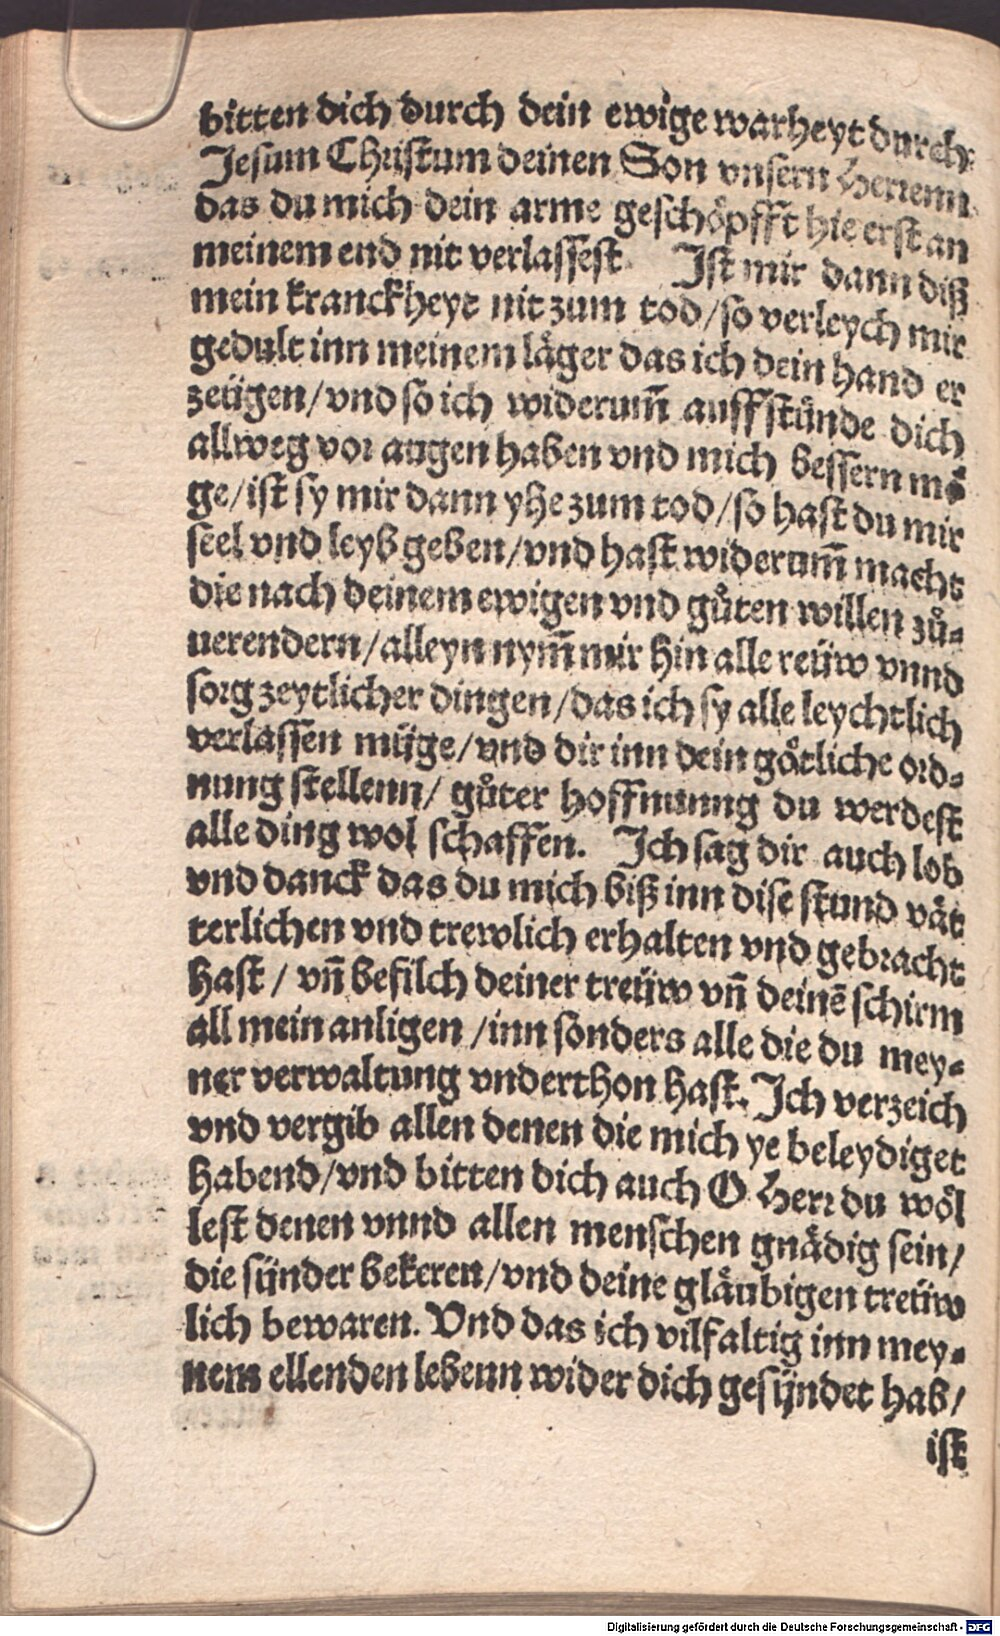 bitten dich durch dein ewige warheyt durch
Jesum Christum deinen Son vnsern Herrenn
das du mich dein arme geschöpfft hie erst an
meinem end nit verlassest. Ist mir dann diß
mein kranckheyt nit zum tod/so verleych mir
gedult inn meinem läger das ich dein hand er
zeügen/vnd so ich widerum̃ auffstünde dich
allweg vor augen haben vnd mich bessern mö
ge/ist sy mir dann yhe zum tod/so hast du mir
seel vnd leyb geben/vnd hast widerum̃ macht
die nach deinem ewigen vnd gůten willen zů-
uerendern/alleyn nym̃ mir hin alle reüw vnnd
sorg zeytlicher dingen/das ich sy alle leychtlich
verlassen müge/vnd dir inn dein götliche ord-
nung stellenn/ gůter hoffnunng du werdest
alle ding wol schaffen. Ich sag dir auch lob
vnd danck das du mich biß inn dise stund vät
terlichen vnd trewlich erhalten vnd gebracht
hast / vñ befilch deiner treüw vñ deinẽ schirm
all mein anligen /inn sonders alle die du mey-
ner verwaltung vnderthon hast. Ich verzeich
vnd vergib allen denen die mich ye beleydiget
habend/vnd bitten dich auch O Herr du wöl
lest denen vnnd allen menschen gnädig sein/
die sünder bekeren/vnd deine gläubigen treüw
lich bewaren. Vnd das ich vilfaltig inn mey-
nem ellenden lebenn wider dich gesündet hab/
ist
Digitalisierung gefördert durch die Deutsche Forschungsgemeinschaft - DFG